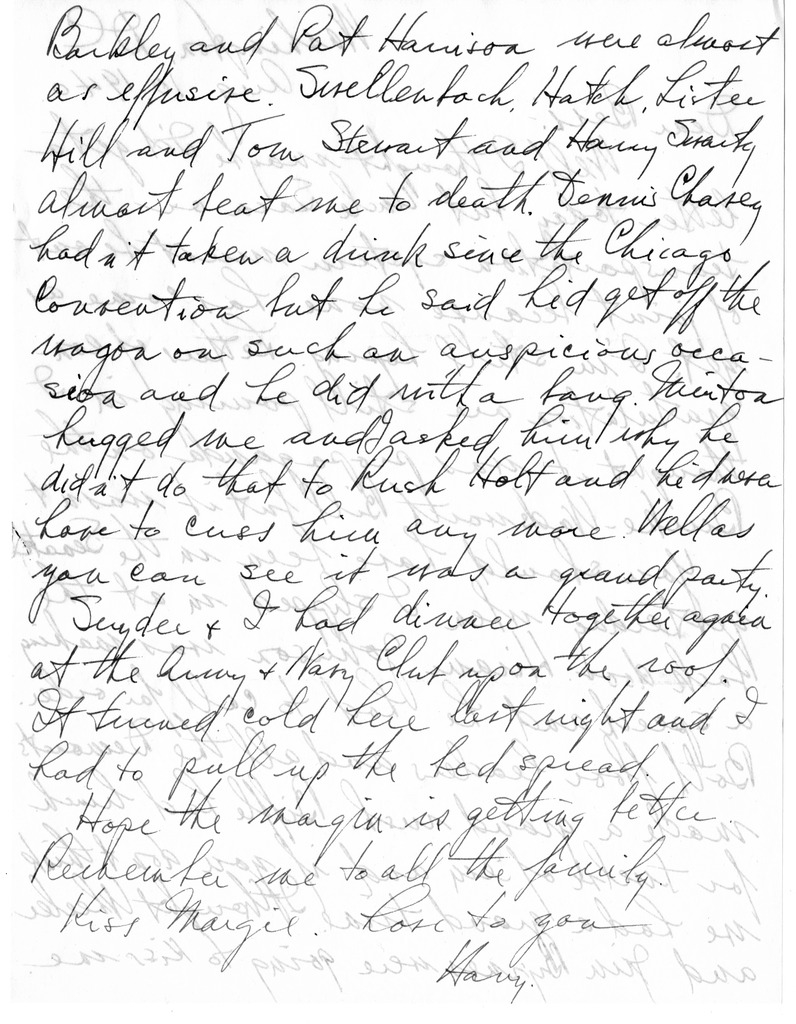 Barkley and Pat Harrison were almost
as effusive. Swellenbach, Hatch, Lister
Hill and Tom Stewart and Harry Swartz
almost beat me to death. Dennis Chavez
hadn't taken a drink since the Chicago
Convention but he said he'd get off the
wagon on such an auspicious occa-
sion and he did with a bang. Minton
hugged me and I asked him why he
didn't do that to Rush Holt and he'd never
have to cuss him any more. Well as
you can see it was a grand party.
Snyder & I had dinner together again
at the Army & Navy Club upon the roof.
It turned cold here last night and I
had to pull up the bed spread.
Hope the margin is getting better.
Remember me to all the family.
Kiss Margie. Love to you
Harry.